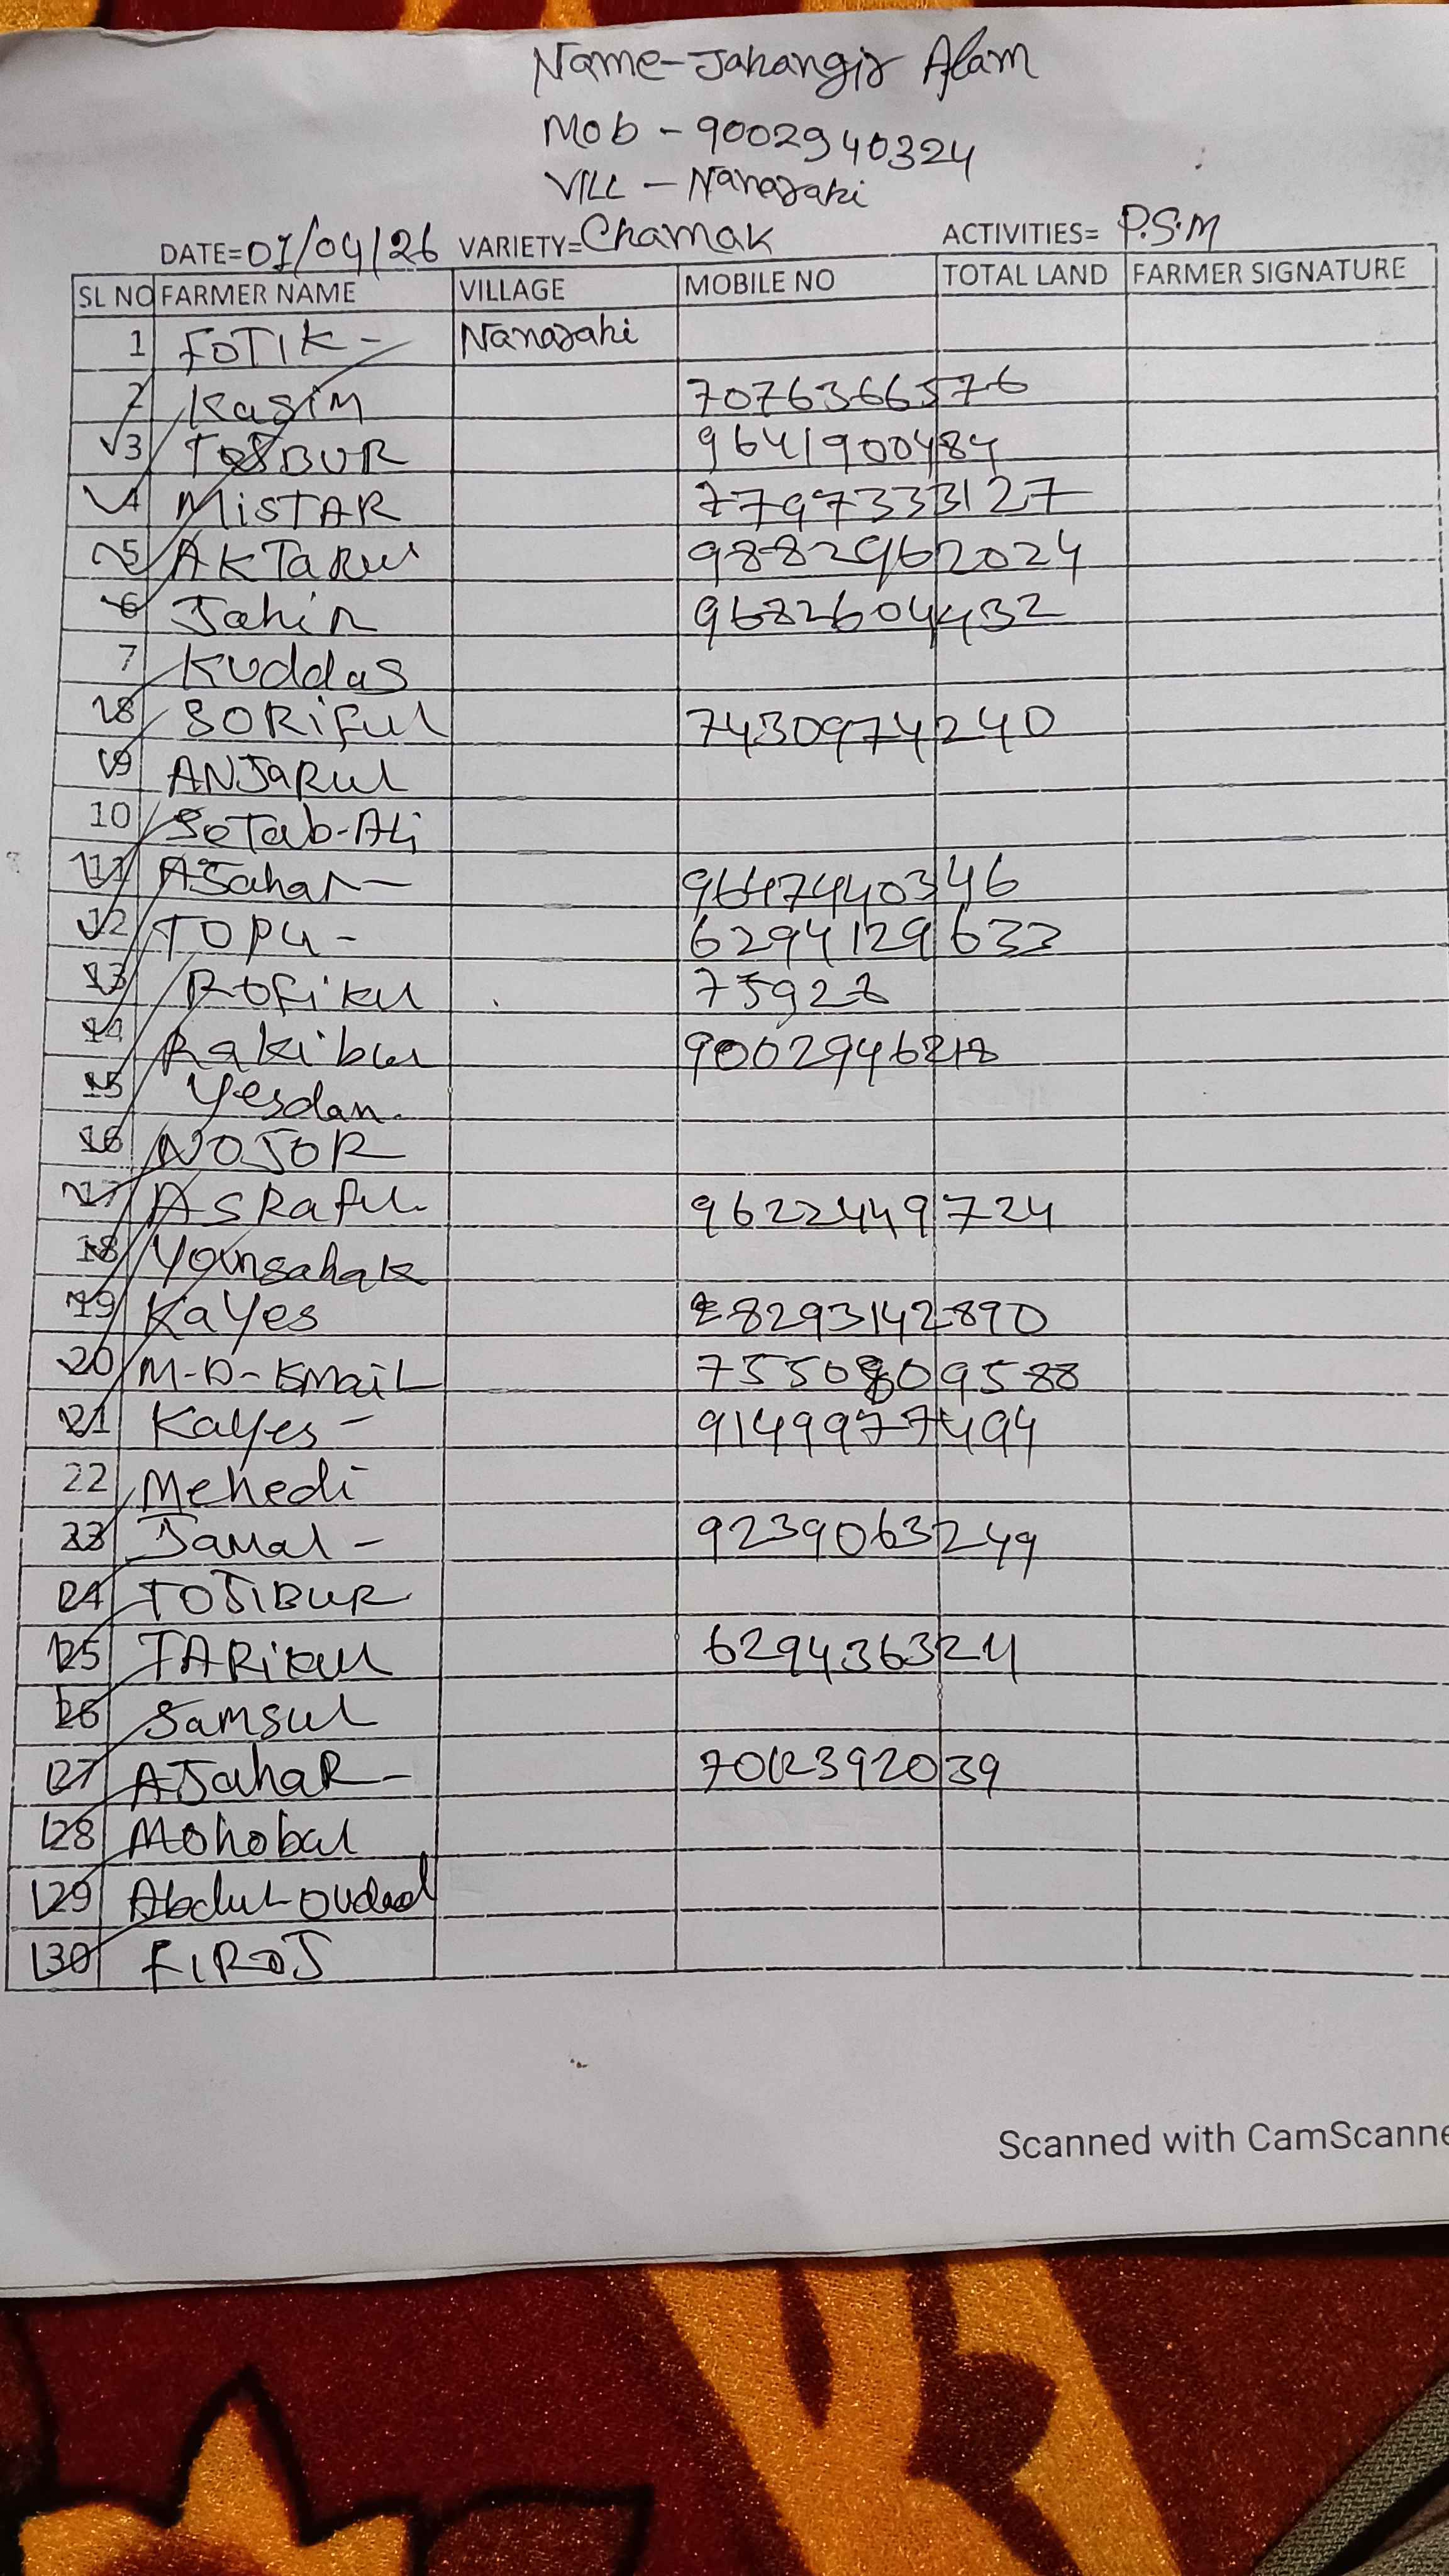 Name-Jahangir Alam
Mob - 9002940324
VILL - Nanarahi
DATE=07/04/26 VARIETY=Chamak ACTIVITIES= P.S.M
SL NO FARMER NAME VILLAGE MOBILE NO TOTAL LAND FARMER SIGNATURE
1 FOTIK - Nanarahi
2 Kasim 7076366576
3 TOSBUR 9641900484
4 MiSTAR 7797333127
5 AKTARul 9882962024
6 Jahir 9682604432
7 Kuddas
8 SORiful 7430974240
9 ANJaRul
10 Setab-Ali
11 AJahar - 9647440346
12 TOPU - 6294129633
13 Rofikul 75928
14 Rakibul 9002946218
15 Yesdan.
16 NOJOR
17 ASRaful 9622449724
18 Younsahak
19 KaYes 8293142890
20 M-D-EMaiL 7550809588
21 Kayes - 9149977494
22 Mehedi
23 Jamal - 9239063249
24 TOJIBUR
25 TARikul 629436324
26 Samsul
27 AJahaR - 7012392039
28 Mohobul
29 Abdul oudud
30 FIROJ
Scanned with CamScanne